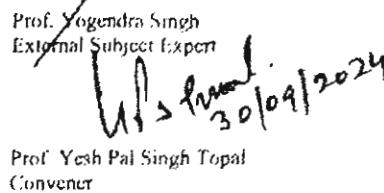 Prof. Yogendra Singh
External Subject Expert
30/09/2024
Prof Yesh Pal Singh Topal
Convener